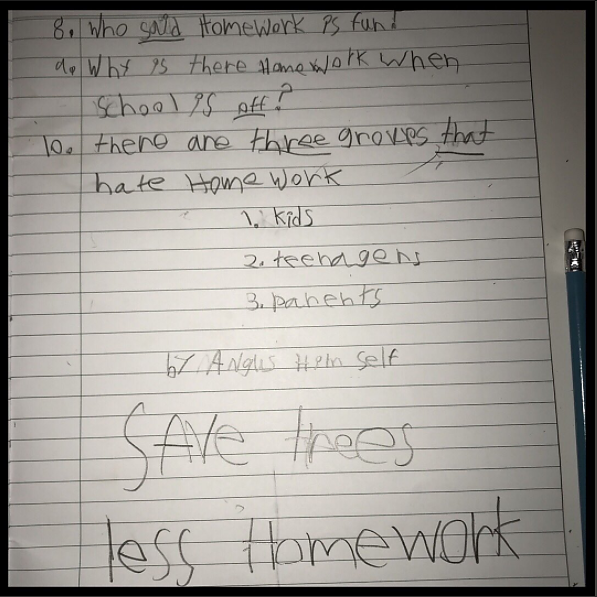 8. Who said Homework is fun!
9. Why is there Homework when
school is off?
10. there are three groups that
hate Homework
1. kids
2. teenagers
3. parents
by Angus Him self
SAVE trees
less Homework